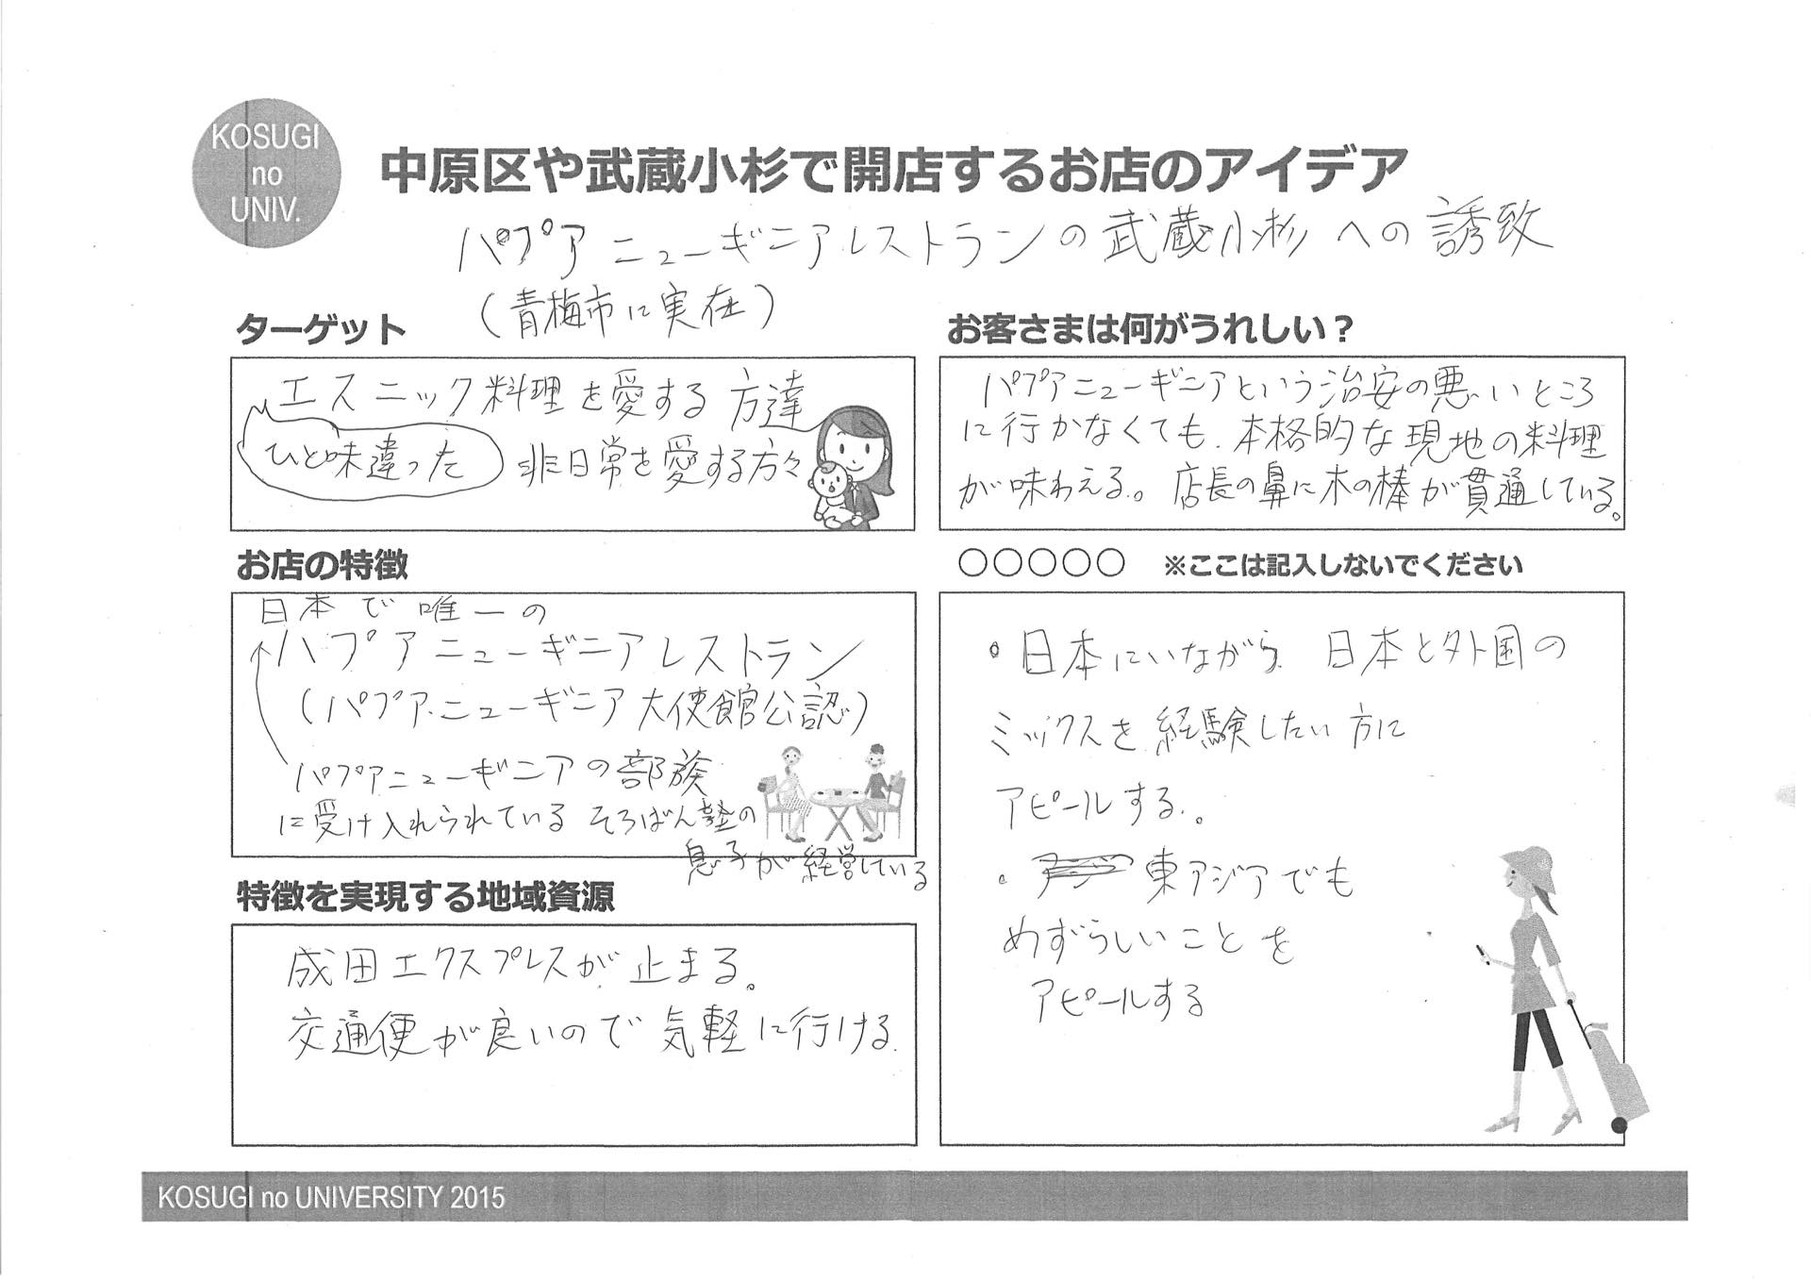 KOSUGI
no
UNIV.
中原区や武蔵小杉で開店するお店のアイデア
パプアニューギニアレストランの武蔵小杉への誘致
(青梅市に実在)
ターゲット
エスニック料理を愛する方達
ひと味違った 非日常を愛する方々
お客さまは何がうれしい？
パプアニューギニアという治安の悪いところ
に行かなくても、本格的な現地の料理
が味わえる。店長の鼻に木の棒が貫通している。
お店の特徴
日本で唯一の
パプアニューギニアレストラン
(パプアニューギニア大使館公認)
パプアニューギニアの部族
に受け入れられているそろばん塾の
息子が経営している
特徴を実現する地域資源
成田エクスプレスが止まる。
交通便が良いので気軽に行ける
○○○○○ ※ここは記入しないでください
・日本にいながら 日本と外国の
ミックスを経験したい方に
アピールする。
・東アジアでも
めずらしいことを
アピールする
KOSUGI no UNIVERSITY 2015